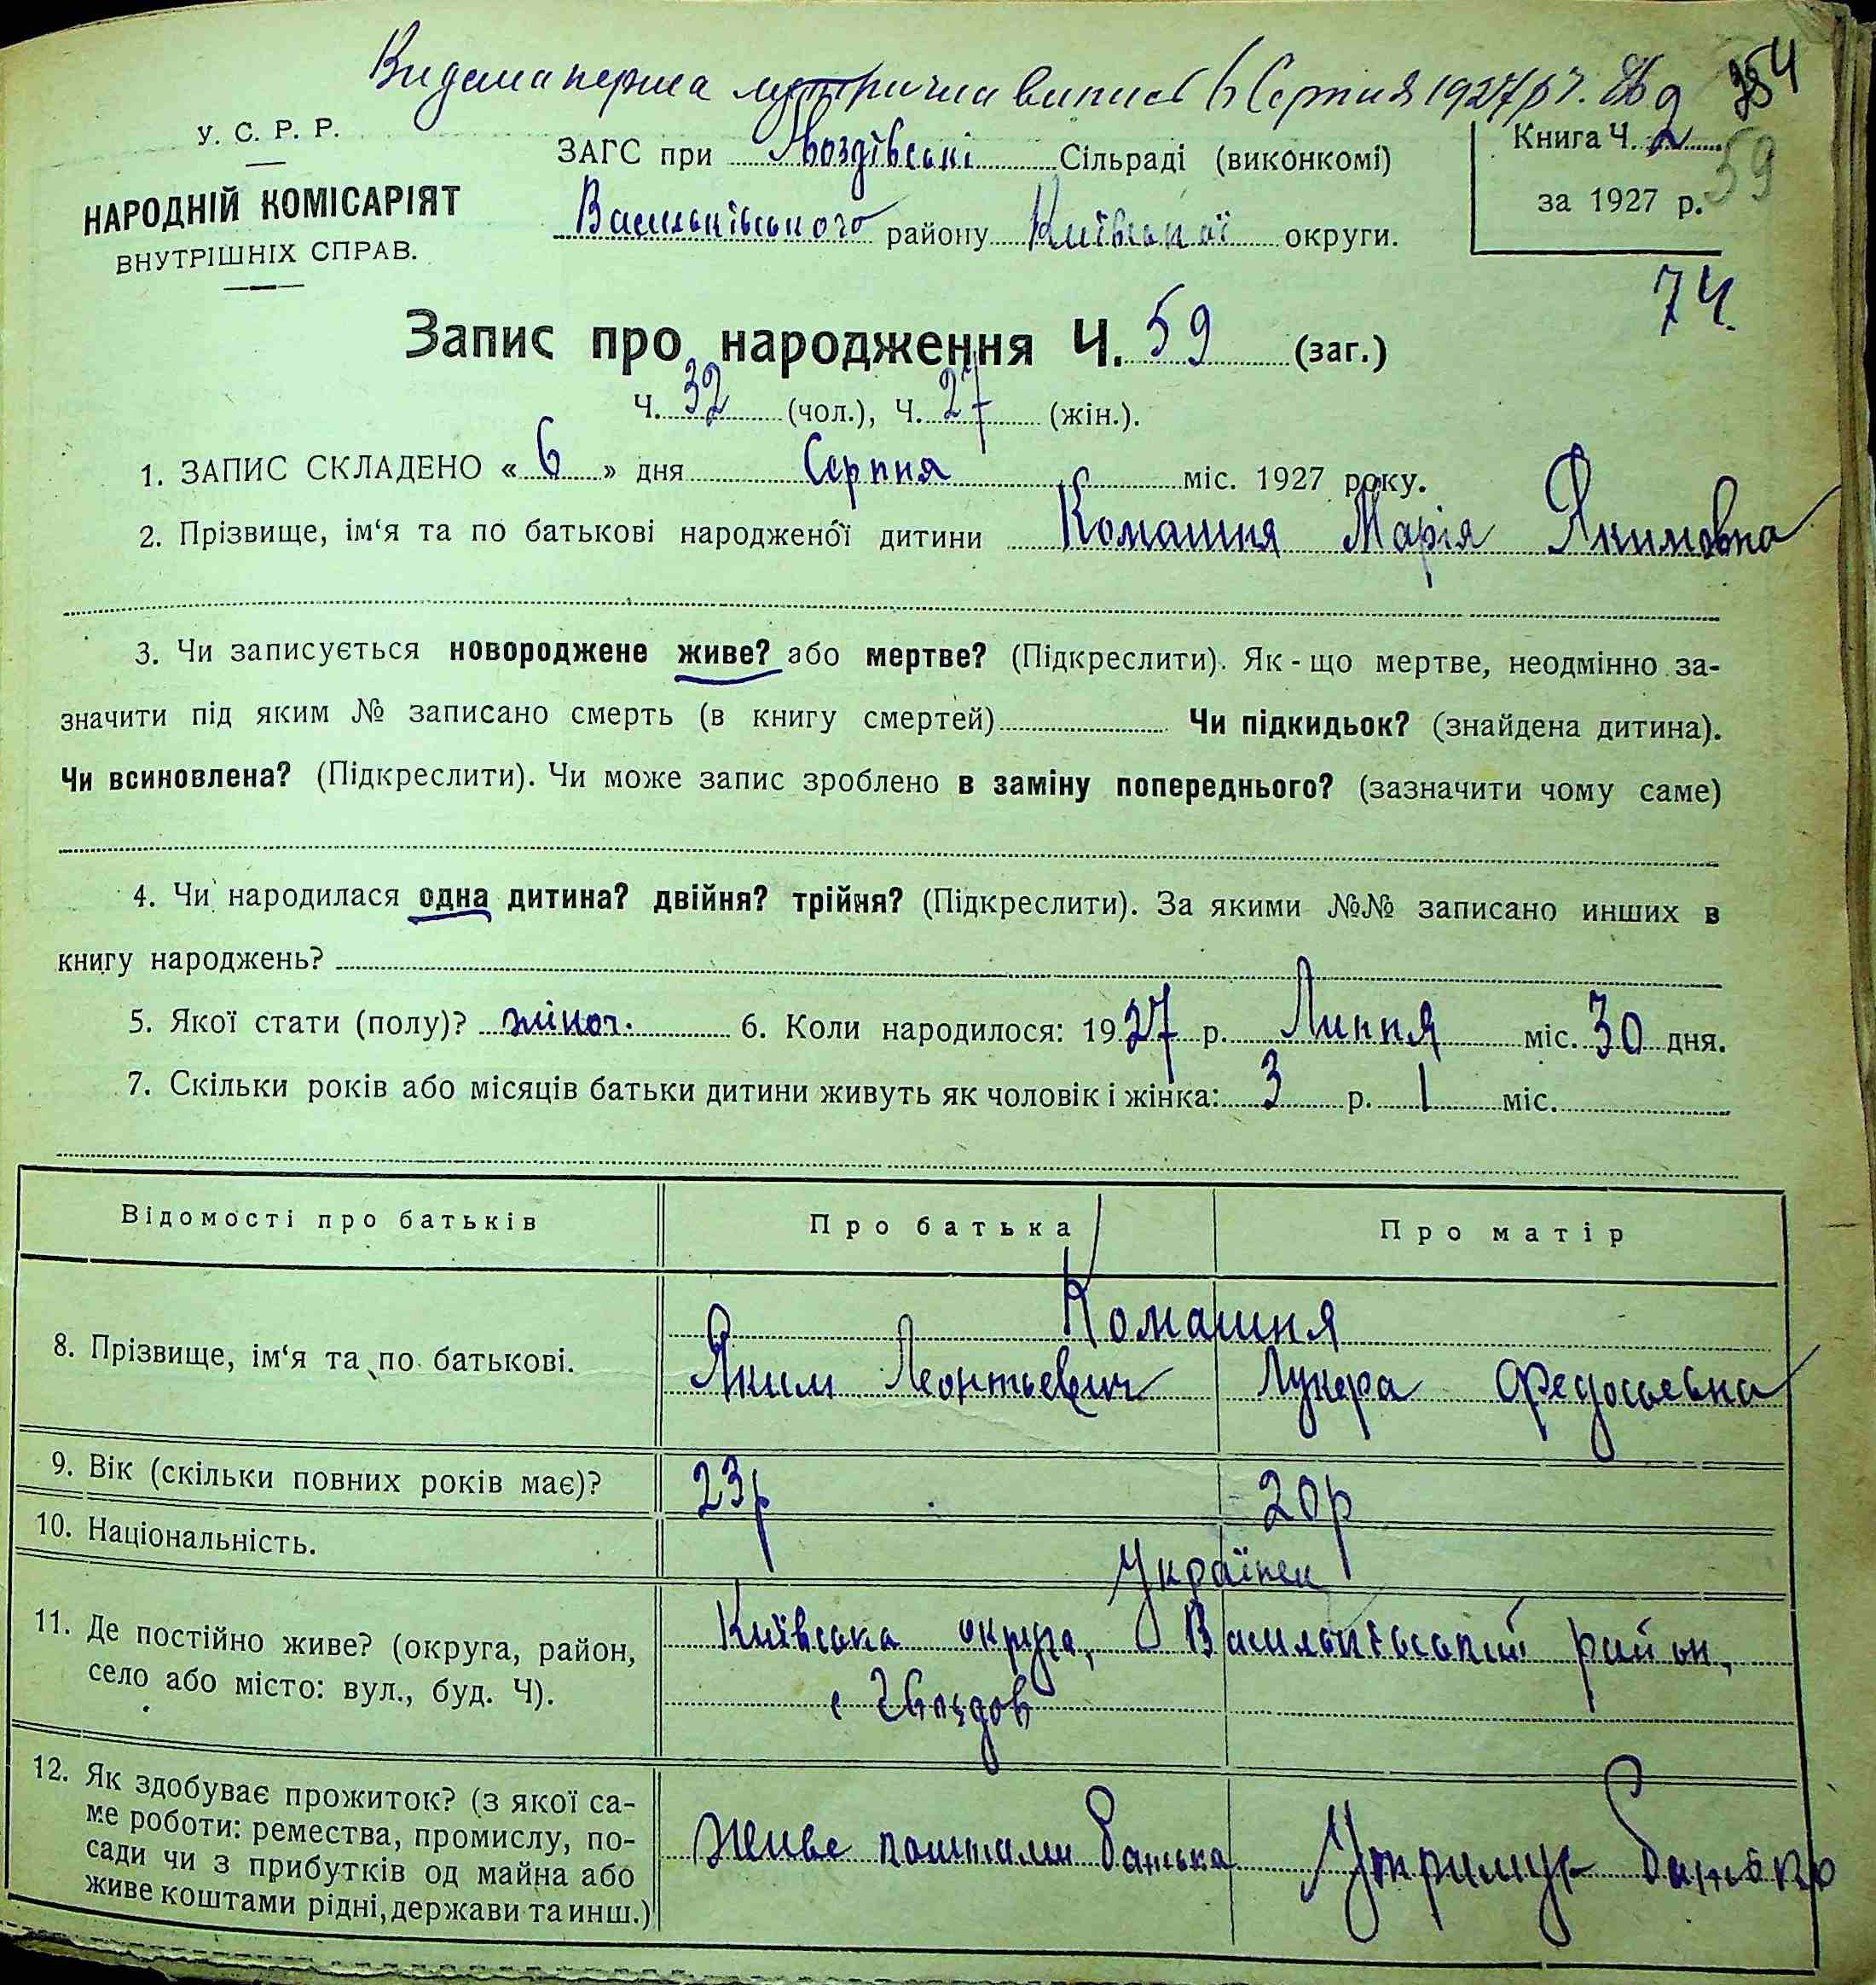 Видана перша метрична випись 6 Серпня 1927 р.
354
У. С. Р. Р.
НАРОДНІЙ КОМІСАРІЯТ
ВНУТРІШНІХ СПРАВ.
ЗАГС при Гвоздівські Сільраді (виконкомі)
Васильківського району Київської округи.
Книга Ч. 2
59
за 1927 р.
74
Запис про народження Ч. 59 (заг.)
Ч. 32 (чол.), Ч. 27 (жін.).
1. ЗАПИС СКЛАДЕНО « 6 » дня Серпня міс. 1927 року.
2. Прізвище, ім‘я та по батькові народженої дитини Комашня Марія Якимовна
3. Чи записується новороджене живе? або мертве? (Підкреслити). Як - що мертве, неодмінно за-
значити під яким № записано смерть (в книгу смертей) Чи підкидьок? (знайдена дитина).
Чи всиновлена? (Підкреслити). Чи може запис зроблено в заміну попереднього? (зазначити чому саме)
4. Чи народилася одна дитина? двійня? трійня? (Підкреслити). За якими №№ записано инших в
книгу народжень?
5. Якої стати (полу)? жіноч. 6. Коли народилося: 1927 р. Липня міс. 30 дня.
7. Скільки років або місяців батьки дитини живуть як чоловік і жінка: 3 р. 1 міс.
Відомості про батьків Про батька Про матір
8. Прізвище, ім‘я та по батькові.
Комашня
Яким Леонтьевич Лукера Федосьевна
9. Вік (скільки повних років має)? 23 р 20 р
10. Національність. Українці
11. Де постійно живе? (округа, район,
село або місто: вул., буд. Ч).
Київська округа, Васильківський район,
с Гвоздов
12. Як здобуває прожиток? (з якої са-
ме роботи: ремества, промислу, по-
сади чи з прибутків од майна або
живе коштами рідні, держави та инш.)
Живе коштами батька Утримує батько